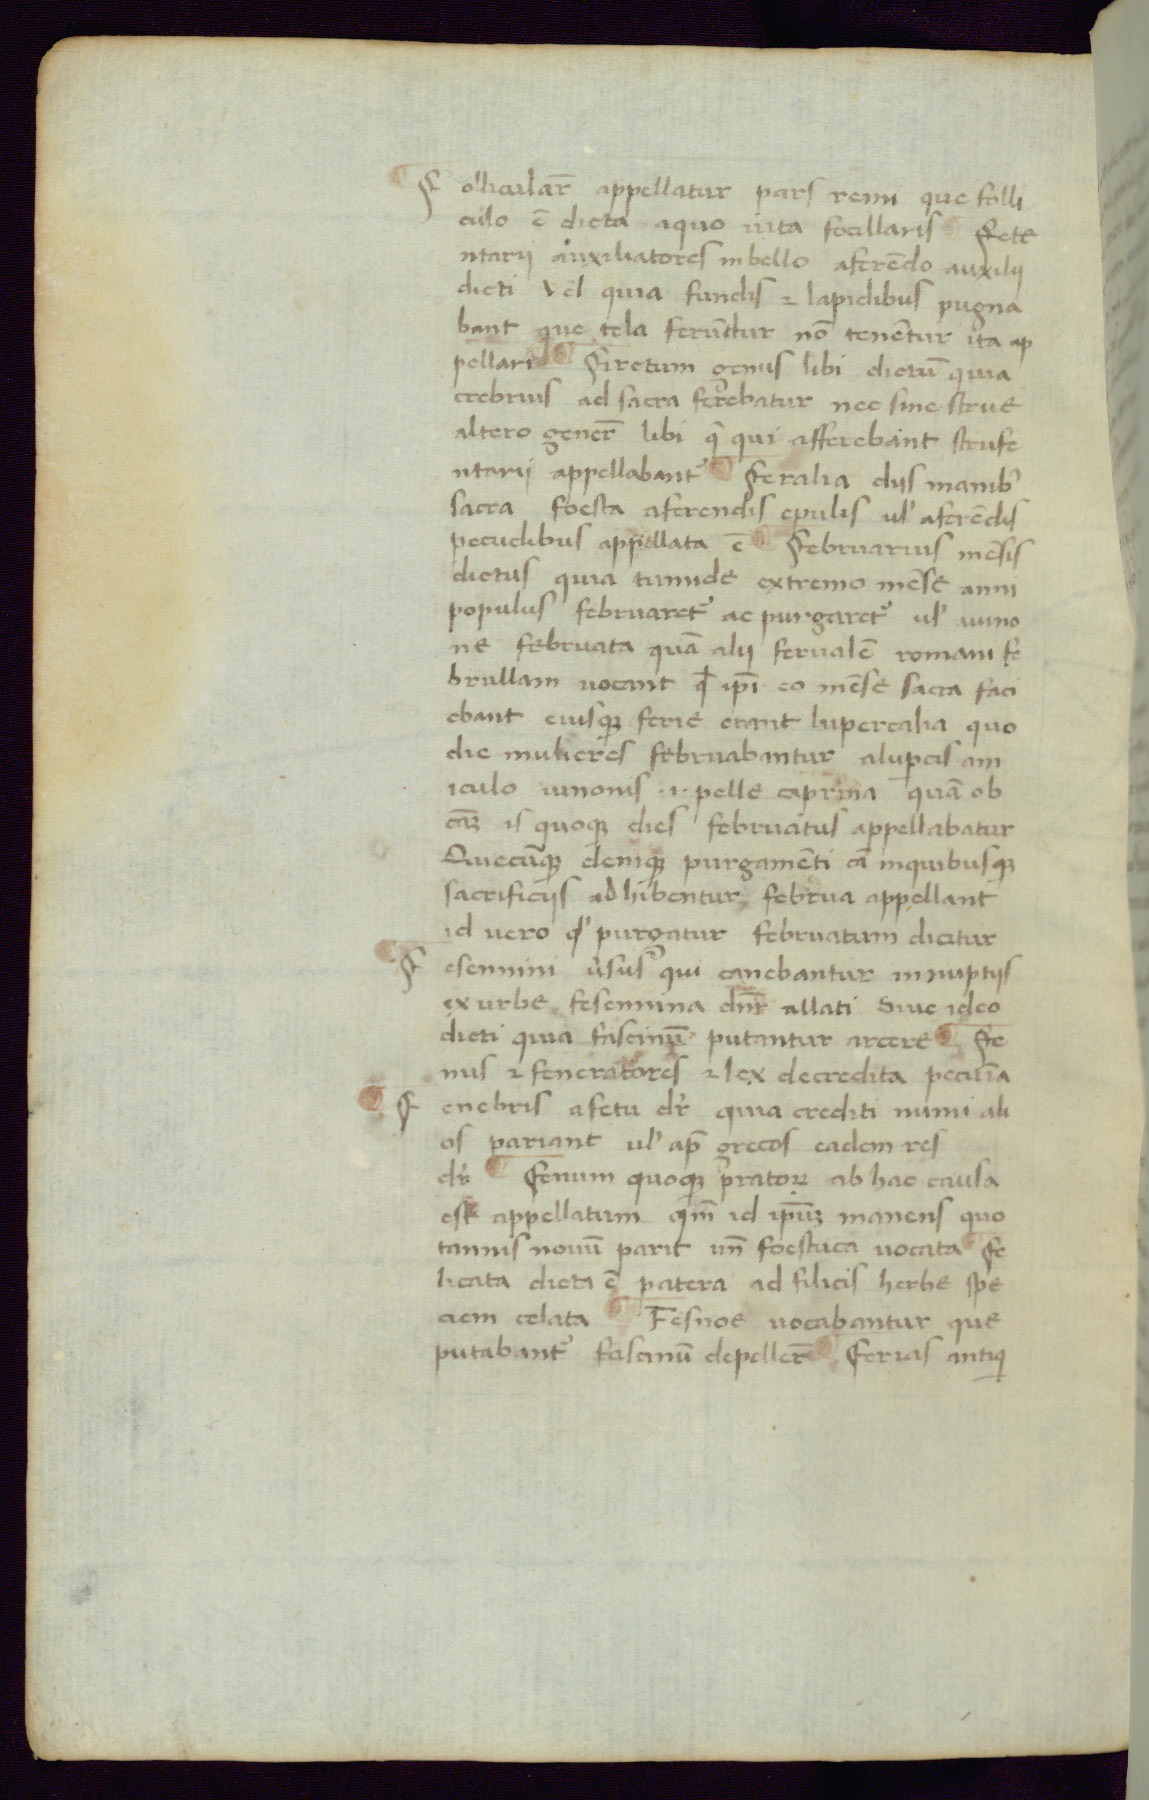 Folliculār appellatur pars remi que folli
culo ē dicta aquo uita focillaris Fere
ntarij auxiliatores inbello aferēdo auxilij
dicti Vel quia fundis ⁊ lapidibus pugna
bant que tela ferūtur nō tenētur ita ap
pellari Firctum genus libi dictū quia
crebrius ad sacra ferebatur nec sine strue
altero genēr libi q̄ qui afferebant strufe
ntarij appellabant᷑ Feralia diis manib᷒
sacra foesta aferendis epulis ul᷒ aferēdis
pecudibus appellata ē Februarius mēsis
dictus quia tumide extremo mēse anni
populus februaret᷑ ac purgaret᷑ ul᷒ iuno
ne februata quā alij ferualē romani fe
brullam uocant q̄ ip̄i eo mēse sacra faci
ebant eiusqꝫ ferie erant lupercalia quo
die mulieres februabantur alupcis am
iculo iunonis .i. pelle caprina quā ob
cāꝫ is quoqꝫ dies februatus appellabatur
Quecūqꝫ deniqꝫ purgamēti cā inquibusqꝫ
sacrificijs adhibentur februa appellant
id uero qd᷒ purgatur februatum dicitur
Fesennini ūsus qui canebantur innuptijs
ex urbe fesennina dn̄r allati Siue ideo
dicti quia fascinū putantur arcere Fe
nus ⁊ feneratores ⁊ lex decredita pecuīa
Fenebris afetu dr̄ quia crediti numi ali
os pariant ul᷒ ap̄ grecos eadem res
dr̄ Fenum quoqꝫ pratoꝝ ab hac causa
est appellatum qm̄ id ip̄uꝫ manens quo
tannis nouū parit un̄ foestuca uocata Fe
licata dicta ē patera ad filicis herbe spe
ciem celata Fesnoe uocabantur que
putabant᷑ fascinū depellēr Ferias antiq